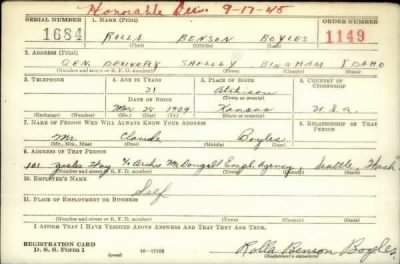 Honorable Dis. 9-17-45
SERIAL NUMBER 1. NAME (Print) ORDER NUMBER
1684 ROLLA BENSON BOYLES 1149
(First) (Middle) (Last)
2. ADDRESS (Print)
GEN. DELIVERY SHELLEY BINGHAM IDAHO
(Number and street or R. F. D. number) (Town) (County) (State)
3. TELEPHONE 4. AGE IN YEARS 5. PLACE OF BIRTH 6. COUNTRY OF CITIZENSHIP
31 Atchison
DATE OF BIRTH (Town or county)
Mar 24 1909 Kansas U.S.A.
(Exchange) (Number) (Mo.) (Day) (Yr.) (State or country)
7. NAME OF PERSON WHO WILL ALWAYS KNOW YOUR ADDRESS 8. RELATIONSHIP OF THAT PERSON
Mr. Claude Boyles
(Mr., Mrs., Miss) (First) (Middle) (Last)
9. ADDRESS OF THAT PERSON
101 Yesler Way % Archie McDougall Empl. Agency, Seattle, Wash.
(Number and street or R. F. D. number) (Town) (County) (State)
10. EMPLOYER'S NAME
Self
11. PLACE OF EMPLOYMENT OR BUSINESS
(Number and street or R. F. D. number) (Town) (County) (State)
I AFFIRM THAT I HAVE VERIFIED ABOVE ANSWERS AND THAT THEY ARE TRUE.
REGISTRATION CARD
D. S. S. Form 1 Rolla Benson Boyles
(Registrant's signature)